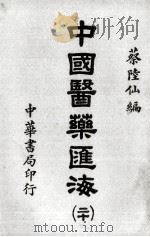 蔡陸仙編
中國醫藥匯海
(二十)
中華書局印行